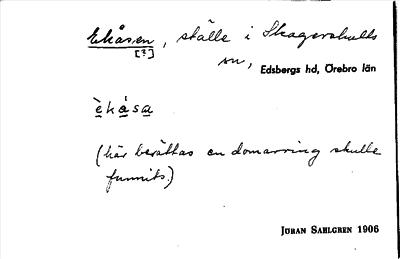 Ekåsen, ställe i Skagershults
[?]
sn, Edsbergs hd, Örebro län
èkåsa
(här berättas en domarring skulle
funnits.)
JÖRAN SAHLGREN 1906